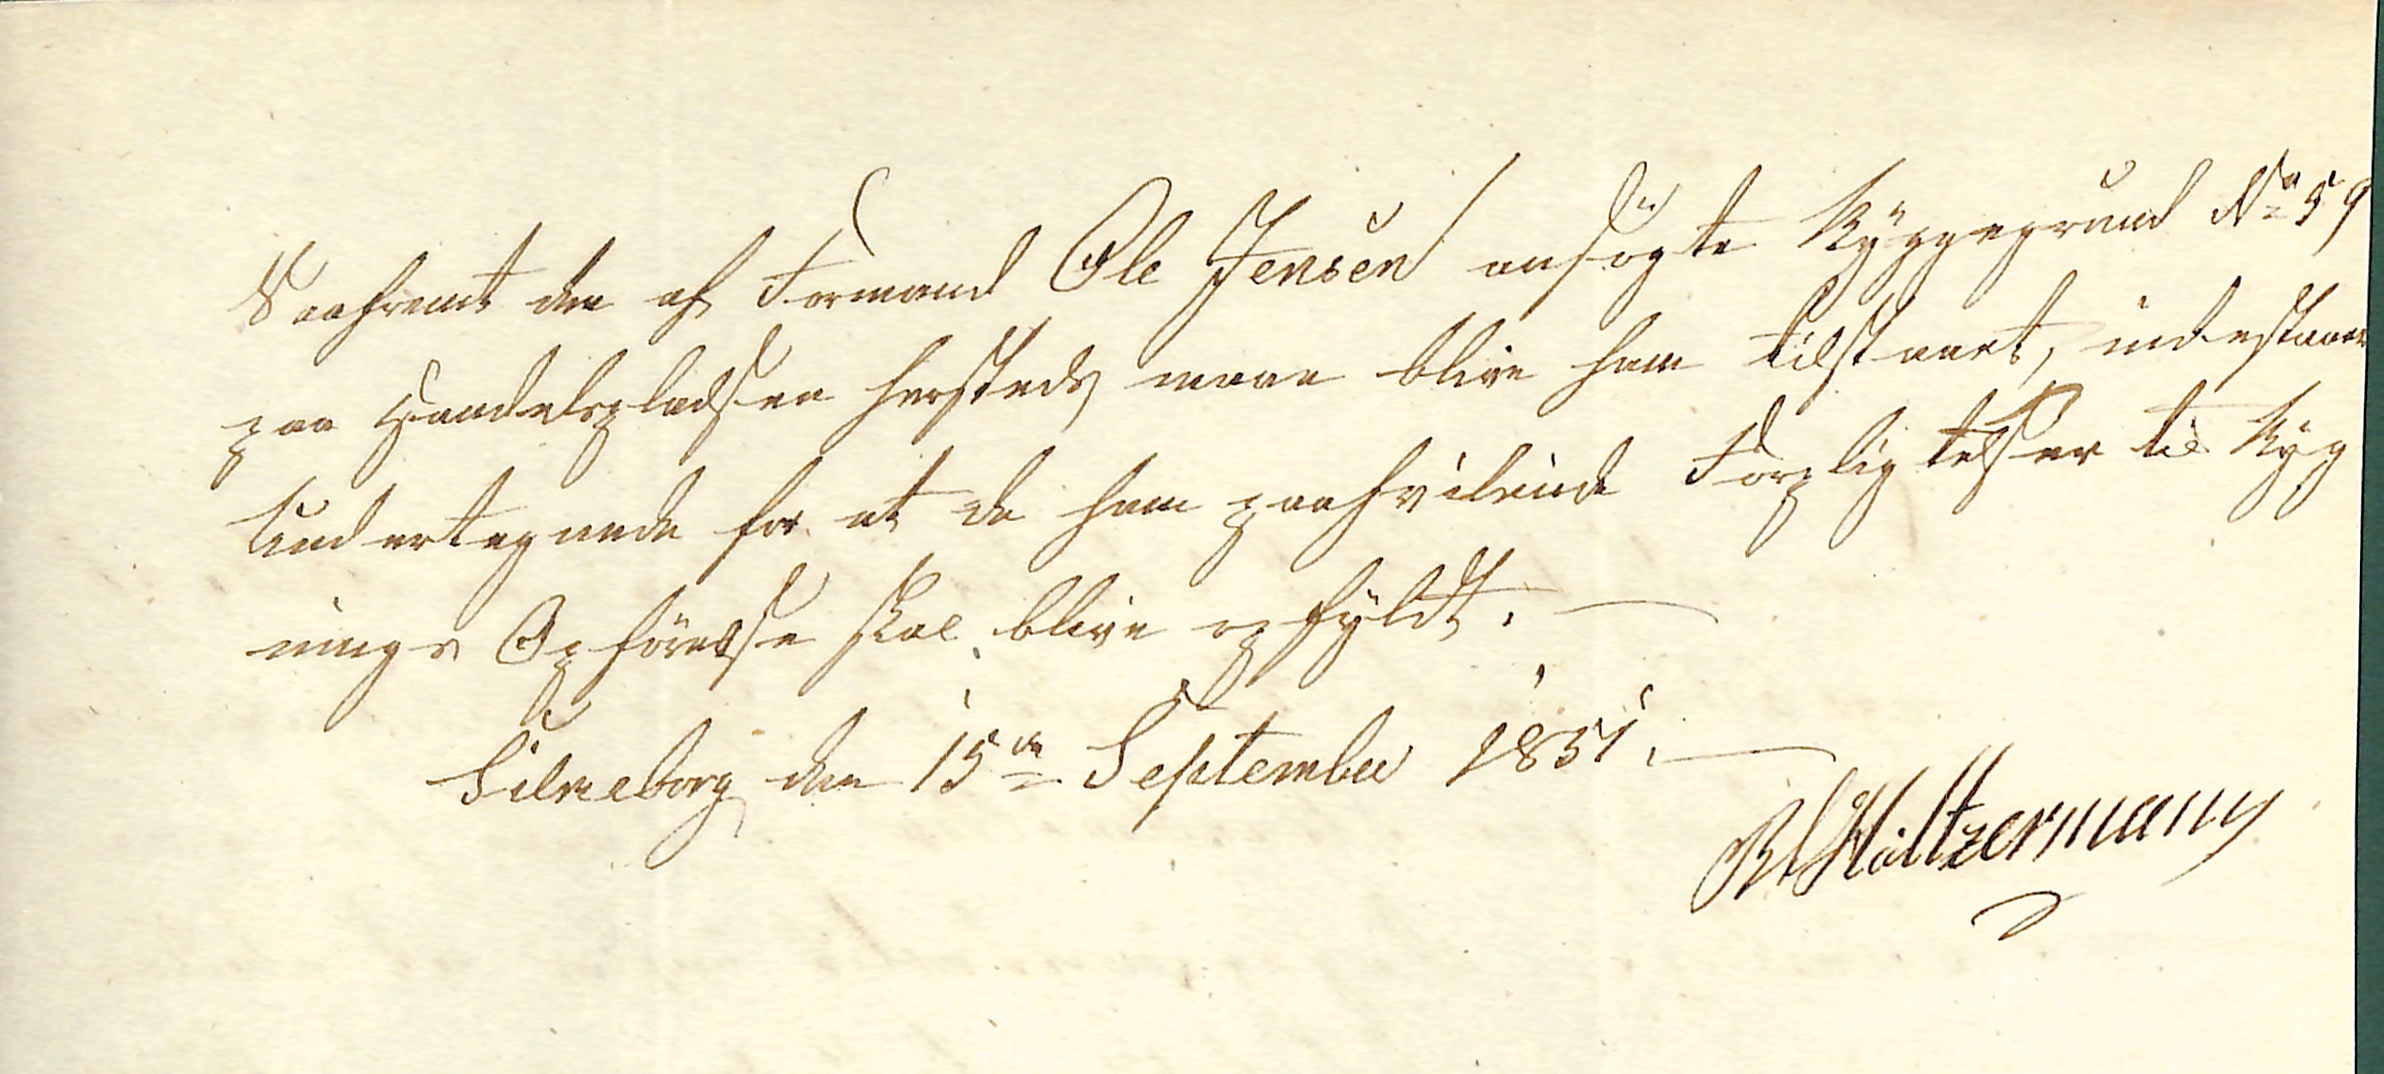 Saafremt den af Formand Ole Jensen ansøgte Byggegrund No 59
paa Handelspladsen hersteds maae blive ham tilstaaet, indestaaer
Undertegnede for at de ham paahvilende Forpligtelser til Byg
nings Opförelse skal blive opfyldt. —
Silkeborg den 15de September 1851. —
Holtzermann